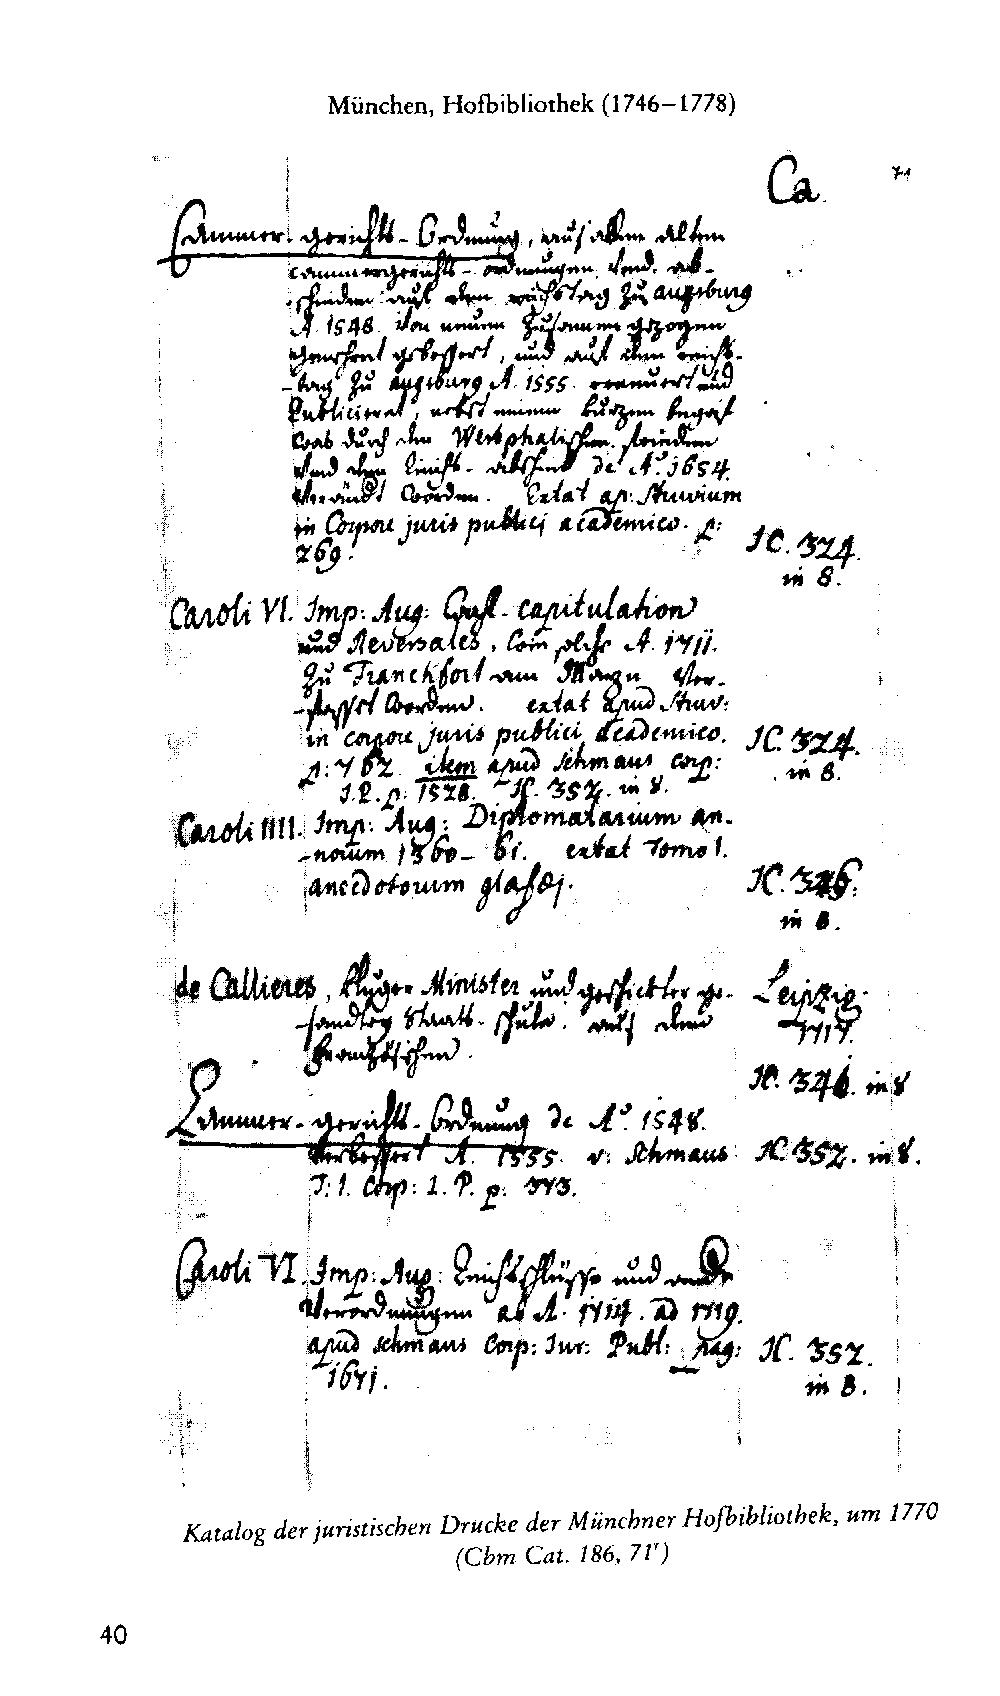 München, Hofbibliothek (1746–1778)
Ca 71
Cammer-gerichts-Ordnung, aus allen alten
cammergerichts-ordnungen. Vnd. ab-
-schieden auf dem reichstag zu augsburg
A. 1548. von neuem zusammen gezogen
gemehret gebessert, und auf dem reichs-
-tag zu augsburg A. 1555. ernuert und
Publicieret, nebst einem kurzen begrif
was durch den Westphalischen frieden
Vnd den Reichs-abschied de Aº. 1654.
Verändt worden. Extat ap: Struvium
in Corpore juris publici academico. p: JC. 324.
269. in 8.
Caroli VI. Imp: Aug: Wahl-capitulation
und Reversales, wie solche A. 1711.
zu Franckfort am Mayn Ver-
-fasset worden. extat apud Struv:
in corpore juris publici academico. JC. 324.
p: 762. item apud Schmaus corp: in 8.
I.P. p: 1528. JC. 352. in 8.
Caroli IIII. Imp: Aug: Diplomatarium an-
-norum 1360-61. extat Tomo I.
anecdotorum glafeÿ. JC. 346.
in 8.
de Callieres, kluger Minister und geschickter ge- Leipzig.
-sandter Staats-schule. aus dem 1717.
französischen.
JC. 346. in 8
Cammer-gerichts-Ordnung de Aº. 1548.
Verbessert A. 1555. v: Schmaus JC 352. in 8.
T: I. Corp: I. P. p: 373.
Caroli VI. Imp: Aug: Reichsschlüsse und
Verordnungen ab A. 1714. ad 1719.
apud Schmaus Corp: Jur: Publ: pag: JC. 352.
1671. in 8.
Katalog der juristischen Drucke der Münchner Hofbibliothek, um 1770
(Cbm Cat. 186, 71r)
40